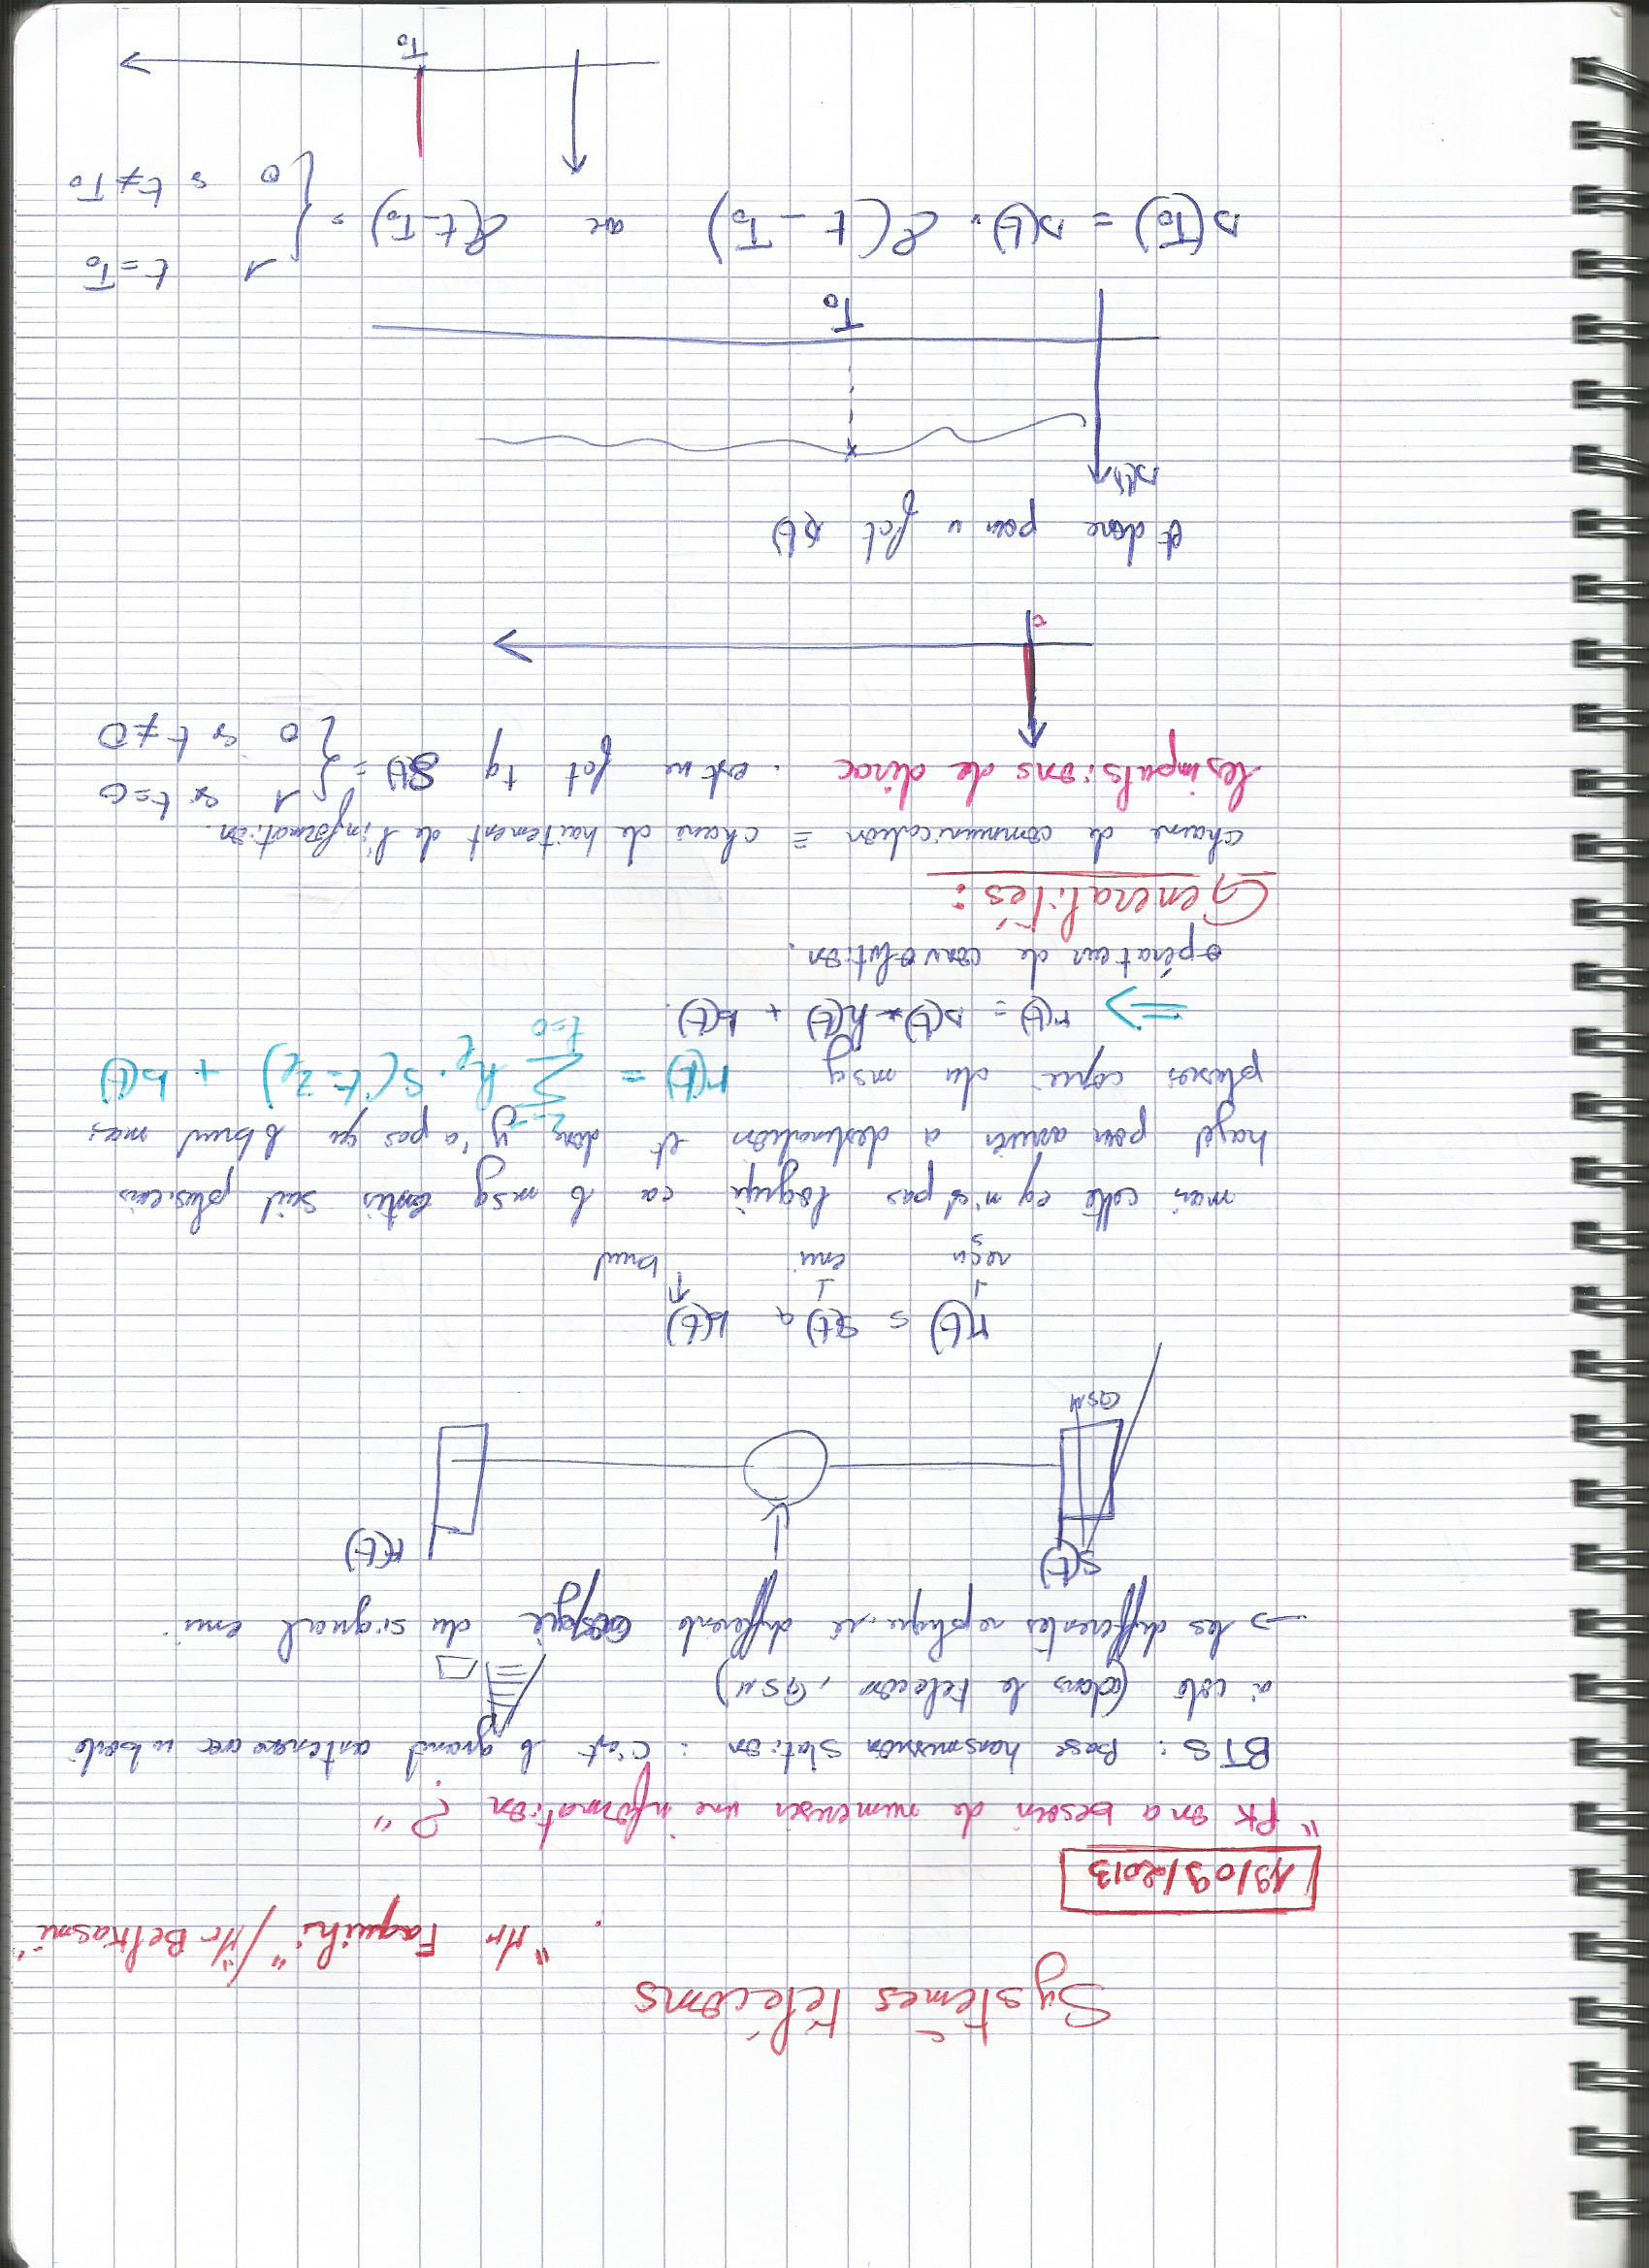 Systèmes télécoms
"Mr Faquihi" / "Mr Belkasmi"
19/09/2013
"PK on a besoin de numeriser une information ?"
BTS : Base transmission Station : c'est le grand antenne avec u boite
à coté (dans le telecom, GSM)
→ les differentes replique, ie differents du signal emi
S(t) r(t)
GSM
r(t) = s(t) + b(t)
reçu emi bruit
mais cette eq n'est pas logique ca le msg emis suit plusieurs
trajet pour arriver à destination et donc y'a pas que le bruit mais
plusieurs copie du msg r(t) = Σ hl . S(t - τl) + b(t)
l=0
⇒ r(t) = s(t) * h(t) + b(t).
opérateur de convolution.
Generalités :
chaine de communication = chaine de traitement de l'information.
les impulsions de dirac : est une fct tq δ(t) = { 1 si t=0
0 si t≠0
0
et donc pour u fct s(t)
s(t)
T0
s(T0) = s(t) . δ(t - T0) avc δ(t - T0) = { 1 t = T0
0 si t≠T0
T0